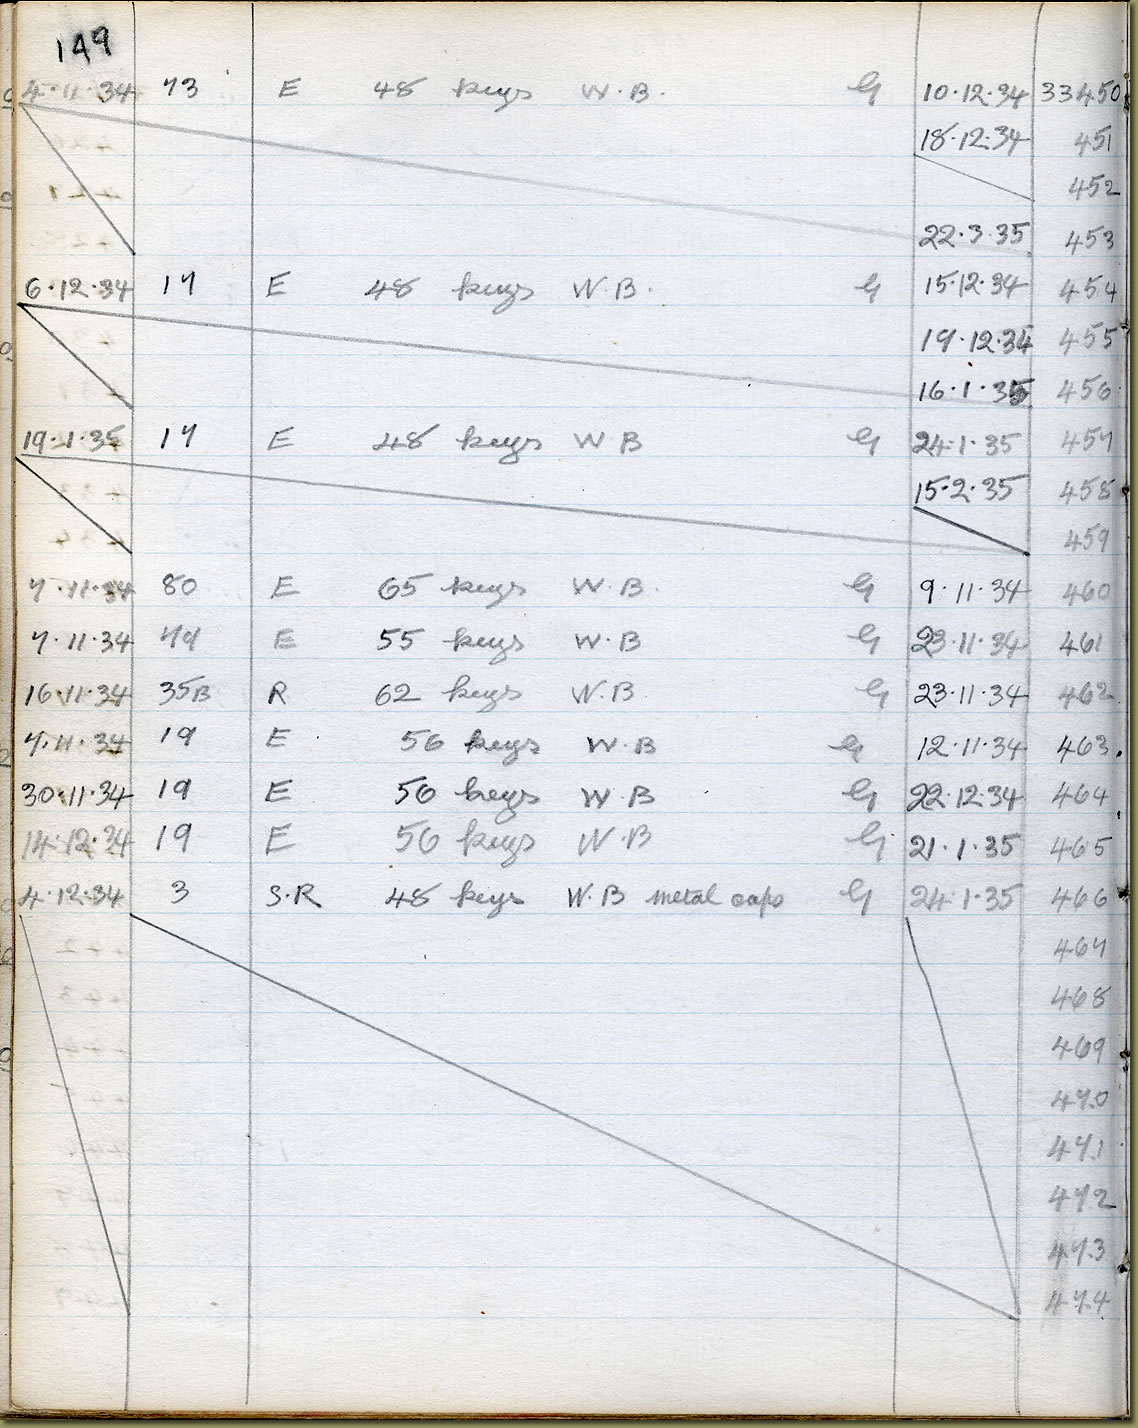 149
4·11·34 73 E 48 keys W.B. G 10·12·34 33450
18·12·34 451
452
22·3·35 453
6·12·34 17 E 48 keys W.B. G 15·12·34 454
19·12·34 455
16·1·35 456
19·1·35 17 E 48 keys W B G 24·1·35 457
15·2·35 458
459
7·11·34 80 E 65 keys W.B. G 9·11·34 460
7·11·34 79 E 55 keys W.B G 23·11·34 461
16·11·34 35B R 62 keys W.B. G 23·11·34 462
7·11·34 19 E 56 keys W.B G 12·11·34 463
30·11·34 19 E 56 keys W B G 22·12·34 464
14·12·34 19 E 56 keys W.B G 21·1·35 465
4·12·34 3 S.R 48 keys W.B metal caps G 24·1·35 466
467
468
469
470
471
472
473
474